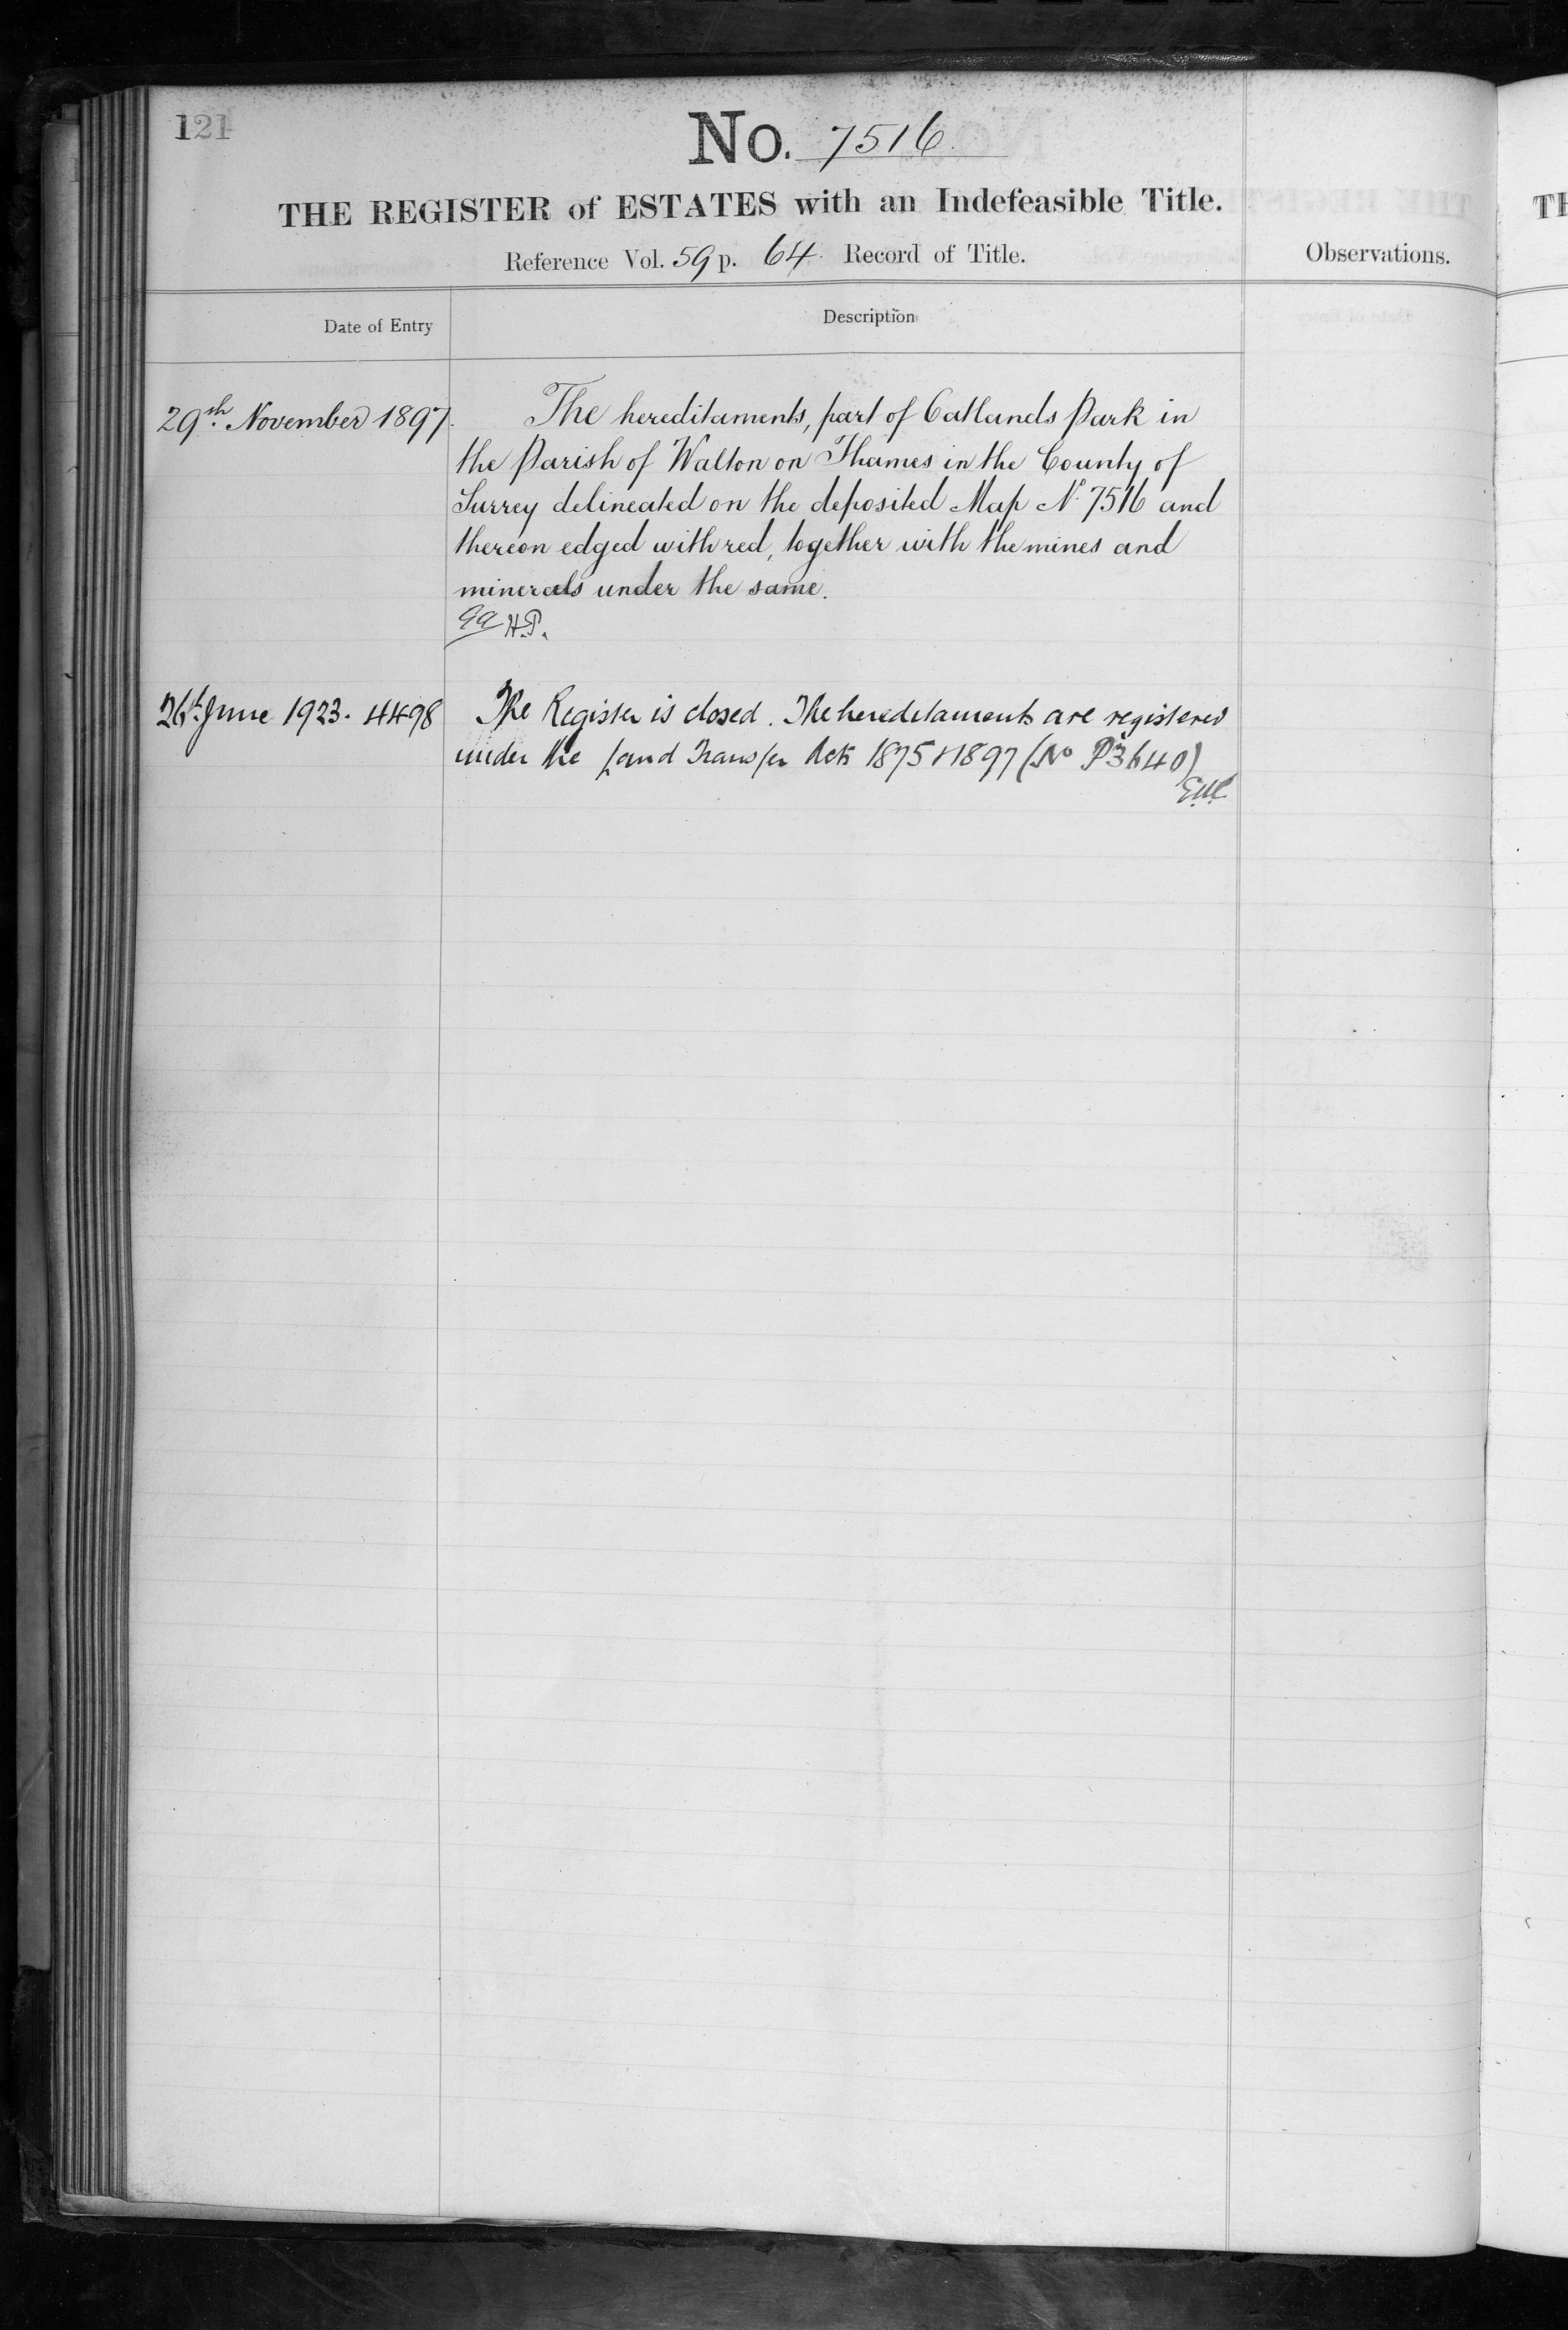 121
No. 7516
THE REGISTER of ESTATES with an Indefeasible Title.
Reference Vol. 59 p. 64 Record of Title.
Observations.
Date of Entry
Description
29th November 1897.
The hereditaments, part of Oatlands Park in
the Parish of Walton on Thames in the County of
Surrey delineated on the deposited Map No 7516 and
thereon edged with red, together with the mines and
minerals under the same.
H.P.
26th June 1923. 4498
The Register is closed. The hereditaments are registered
under the Land Transfer Acts 1875 & 1897 (No P3640)
TH